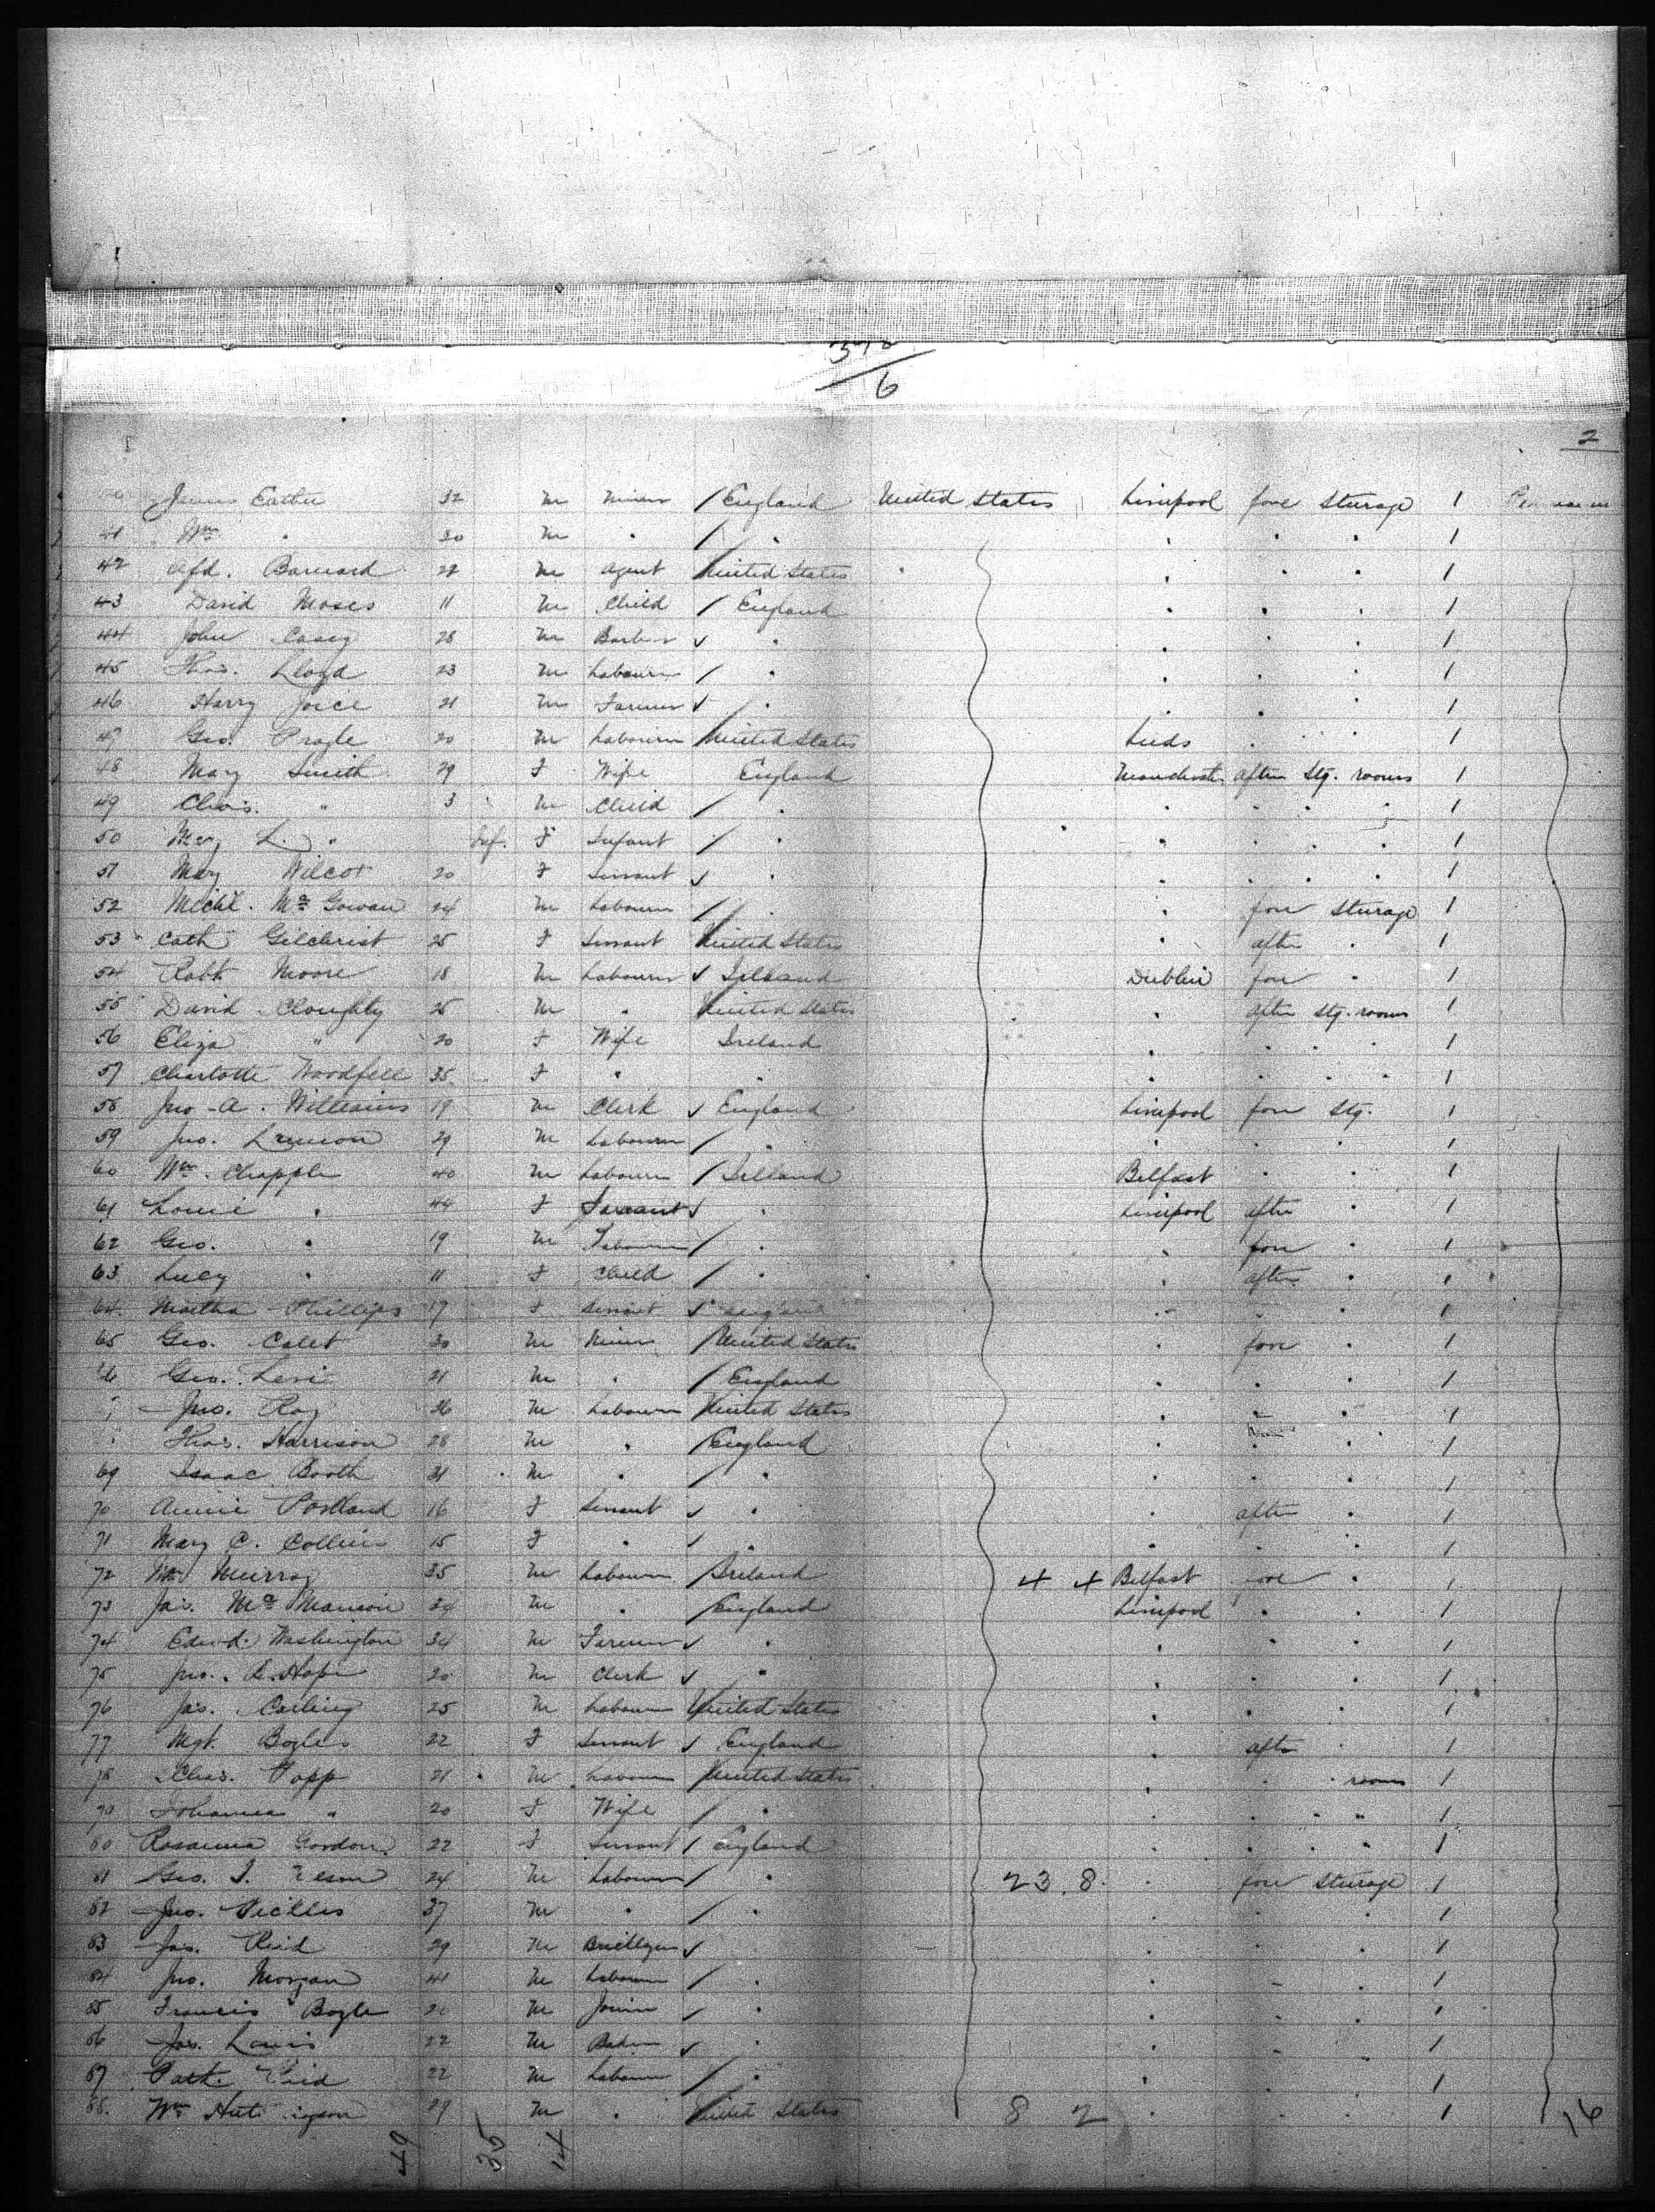 6
2
James 32 m miner / England United States Liverpool fore Sturage 1
41 Wm " 20 m " / " " " " 1
42 Afd. Barnard 22 m Agent / United States " " " 1
43 David Moses 11 m Child / England " " " 1
44 John Casey 28 m Barber ✓ " " " " 1
45 Thos. Lloyd 23 m Labourer / " " " " 1
46 Harry Joice 21 m Farmer ✓ " " " " 1
47 Geo. Pragle 20 m Labourer / United States Leeds " " 1
48 Mary Smith 29 F Wife England Manchester after Stg. rooms 1
49 Chas. " 3 m Child / " " " " " 1
50 Mary L. " Inf. F Infant / " " " " " 1
51 Mary Wilcox 20 F Servant ✓ " " " " " 1
52 Michl. Mc Gowan 24 m Labourer / " " fore Sturage 1
53 Cath Gilchrist 25 F Servant / United States " after " 1
54 Robt Moore 18 m Labourer ✓ Ireland Dublin fore " 1
55 David Cloughly 25 m " / United States " after Stg. rooms 1
56 Eliza " 20 F Wife Ireland " " " " 1
57 Charlotte Woodfell 35 F " " " " " " 1
58 Jno. A. Williams 19 m Clerk ✓ England Liverpool fore Stg. 1
59 Jno. 29 m Labourer / " " " " 1
60 Wm. Chapple 40 m Labourer / Ireland Belfast " " 1
61 Louie " 44 F Servant ✓ " Liverpool after " 1
62 Geo. " 19 m Labourer / " " fore " 1
63 Lucy " 11 F Child / " " after " 1
64 Martha Phillips 17 F Servant ✓ England " " " 1
65 Geo. Calet 30 m Miner / United States " fore " 1
Geo. Levi 21 m " / England " " " 1
Jno. Roy 36 m Labourer / United States " " " 1
Thos. Harrison 28 m " / England " " " 1
69 Isaac Booth 31 m " / " " " " 1
70 Annie Portland 16 F Servant ✓ " " after " 1
71 Mary C. Collin 15 F " ✓ " " " " 1
72 Murray 35 m Labourer / Ireland 4 4 Belfast fore " 1
73 Jas. Mc Manion 34 m " / England Liverpool " " 1
74 Edwd. Washington 34 m Farmer ✓ " " " " 1
75 Jno. Hope 20 m Clerk ✓ " " " " 1
76 Jas. 25 m Labourer / United States " " " 1
77 Mgt. Boyle 22 F Servant ✓ England " after " 1
78 Chas. Popp 21 m Labourer / United States " " rooms 1
79 Johanna " 20 F Wife / " " " " " 1
80 Rosanna Gordon 22 F Servant / England " " " " 1
81 Geo. 24 m Labourer / " 23 8 " fore Sturage 1
82 Jno. 37 m " / " " " " 1
83 Jas. Reid 29 m ✓ " " " " 1
84 Jno. Morgan 41 m Labourer / " " " " 1
85 Francis Boyle m Joiner ✓ " " " " 1
86 Jas. Lewis 22 m Baker ✓ " " " " 1
87 Patk. Reid 22 m Labourer / " " " " 1
88. Wm 29 m " / United States 8 2 " " " 1 16
49 35 14